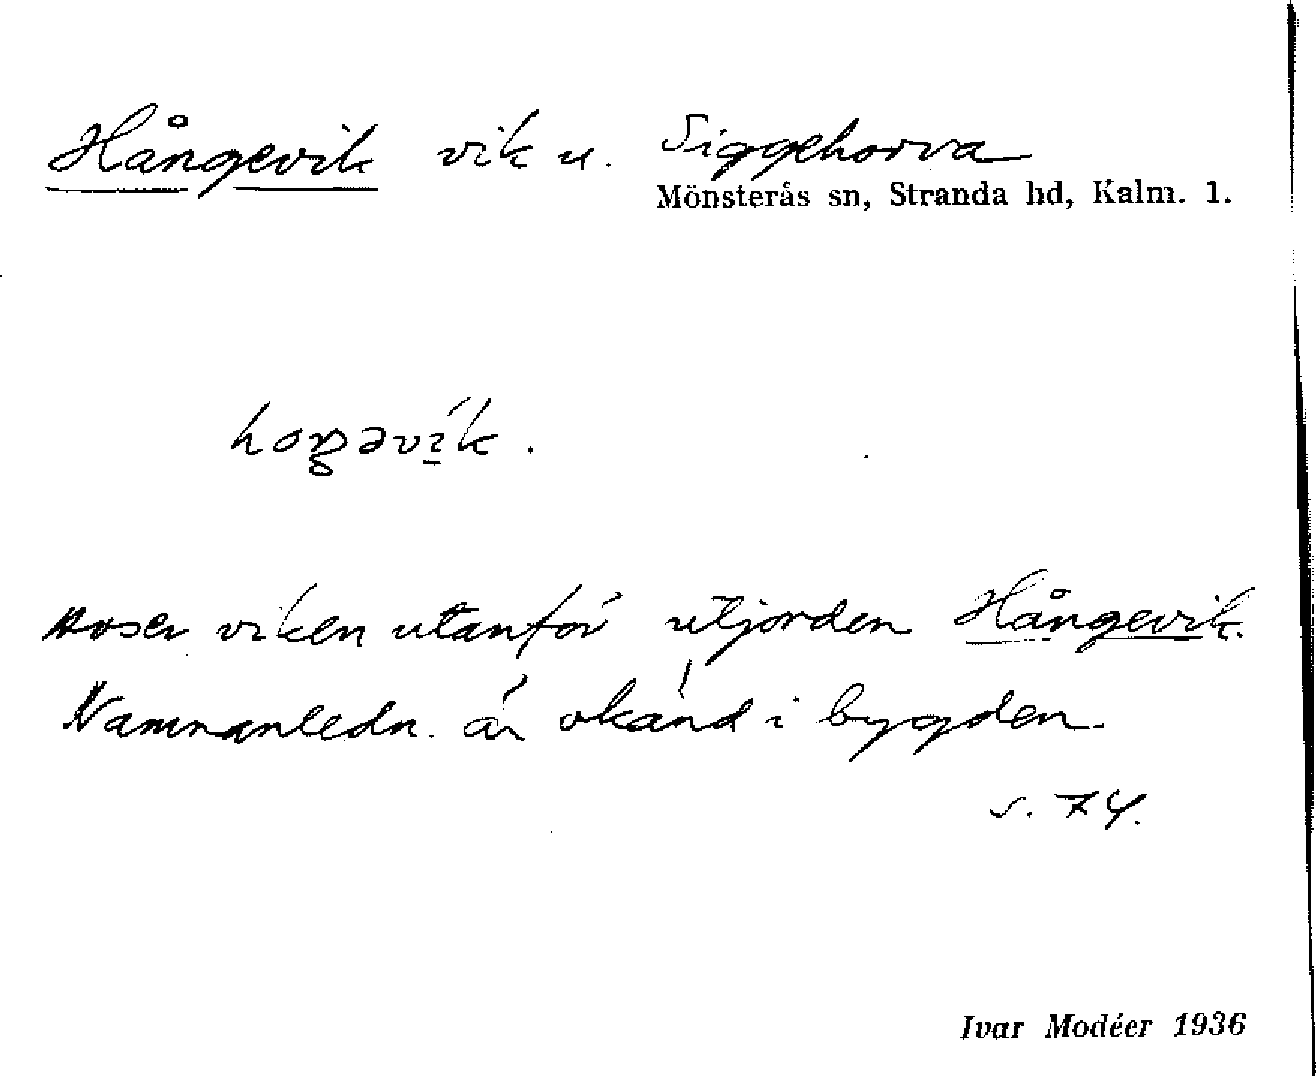 Hångevik vik u. Siggehorva
Mönsterås sn, Stranda hd, Kalm. l.
Avser viken utanför utjorden Hångevik.
Namnanledn. är okänd i bygden.
s. 74.
Ivar Modéer 1936